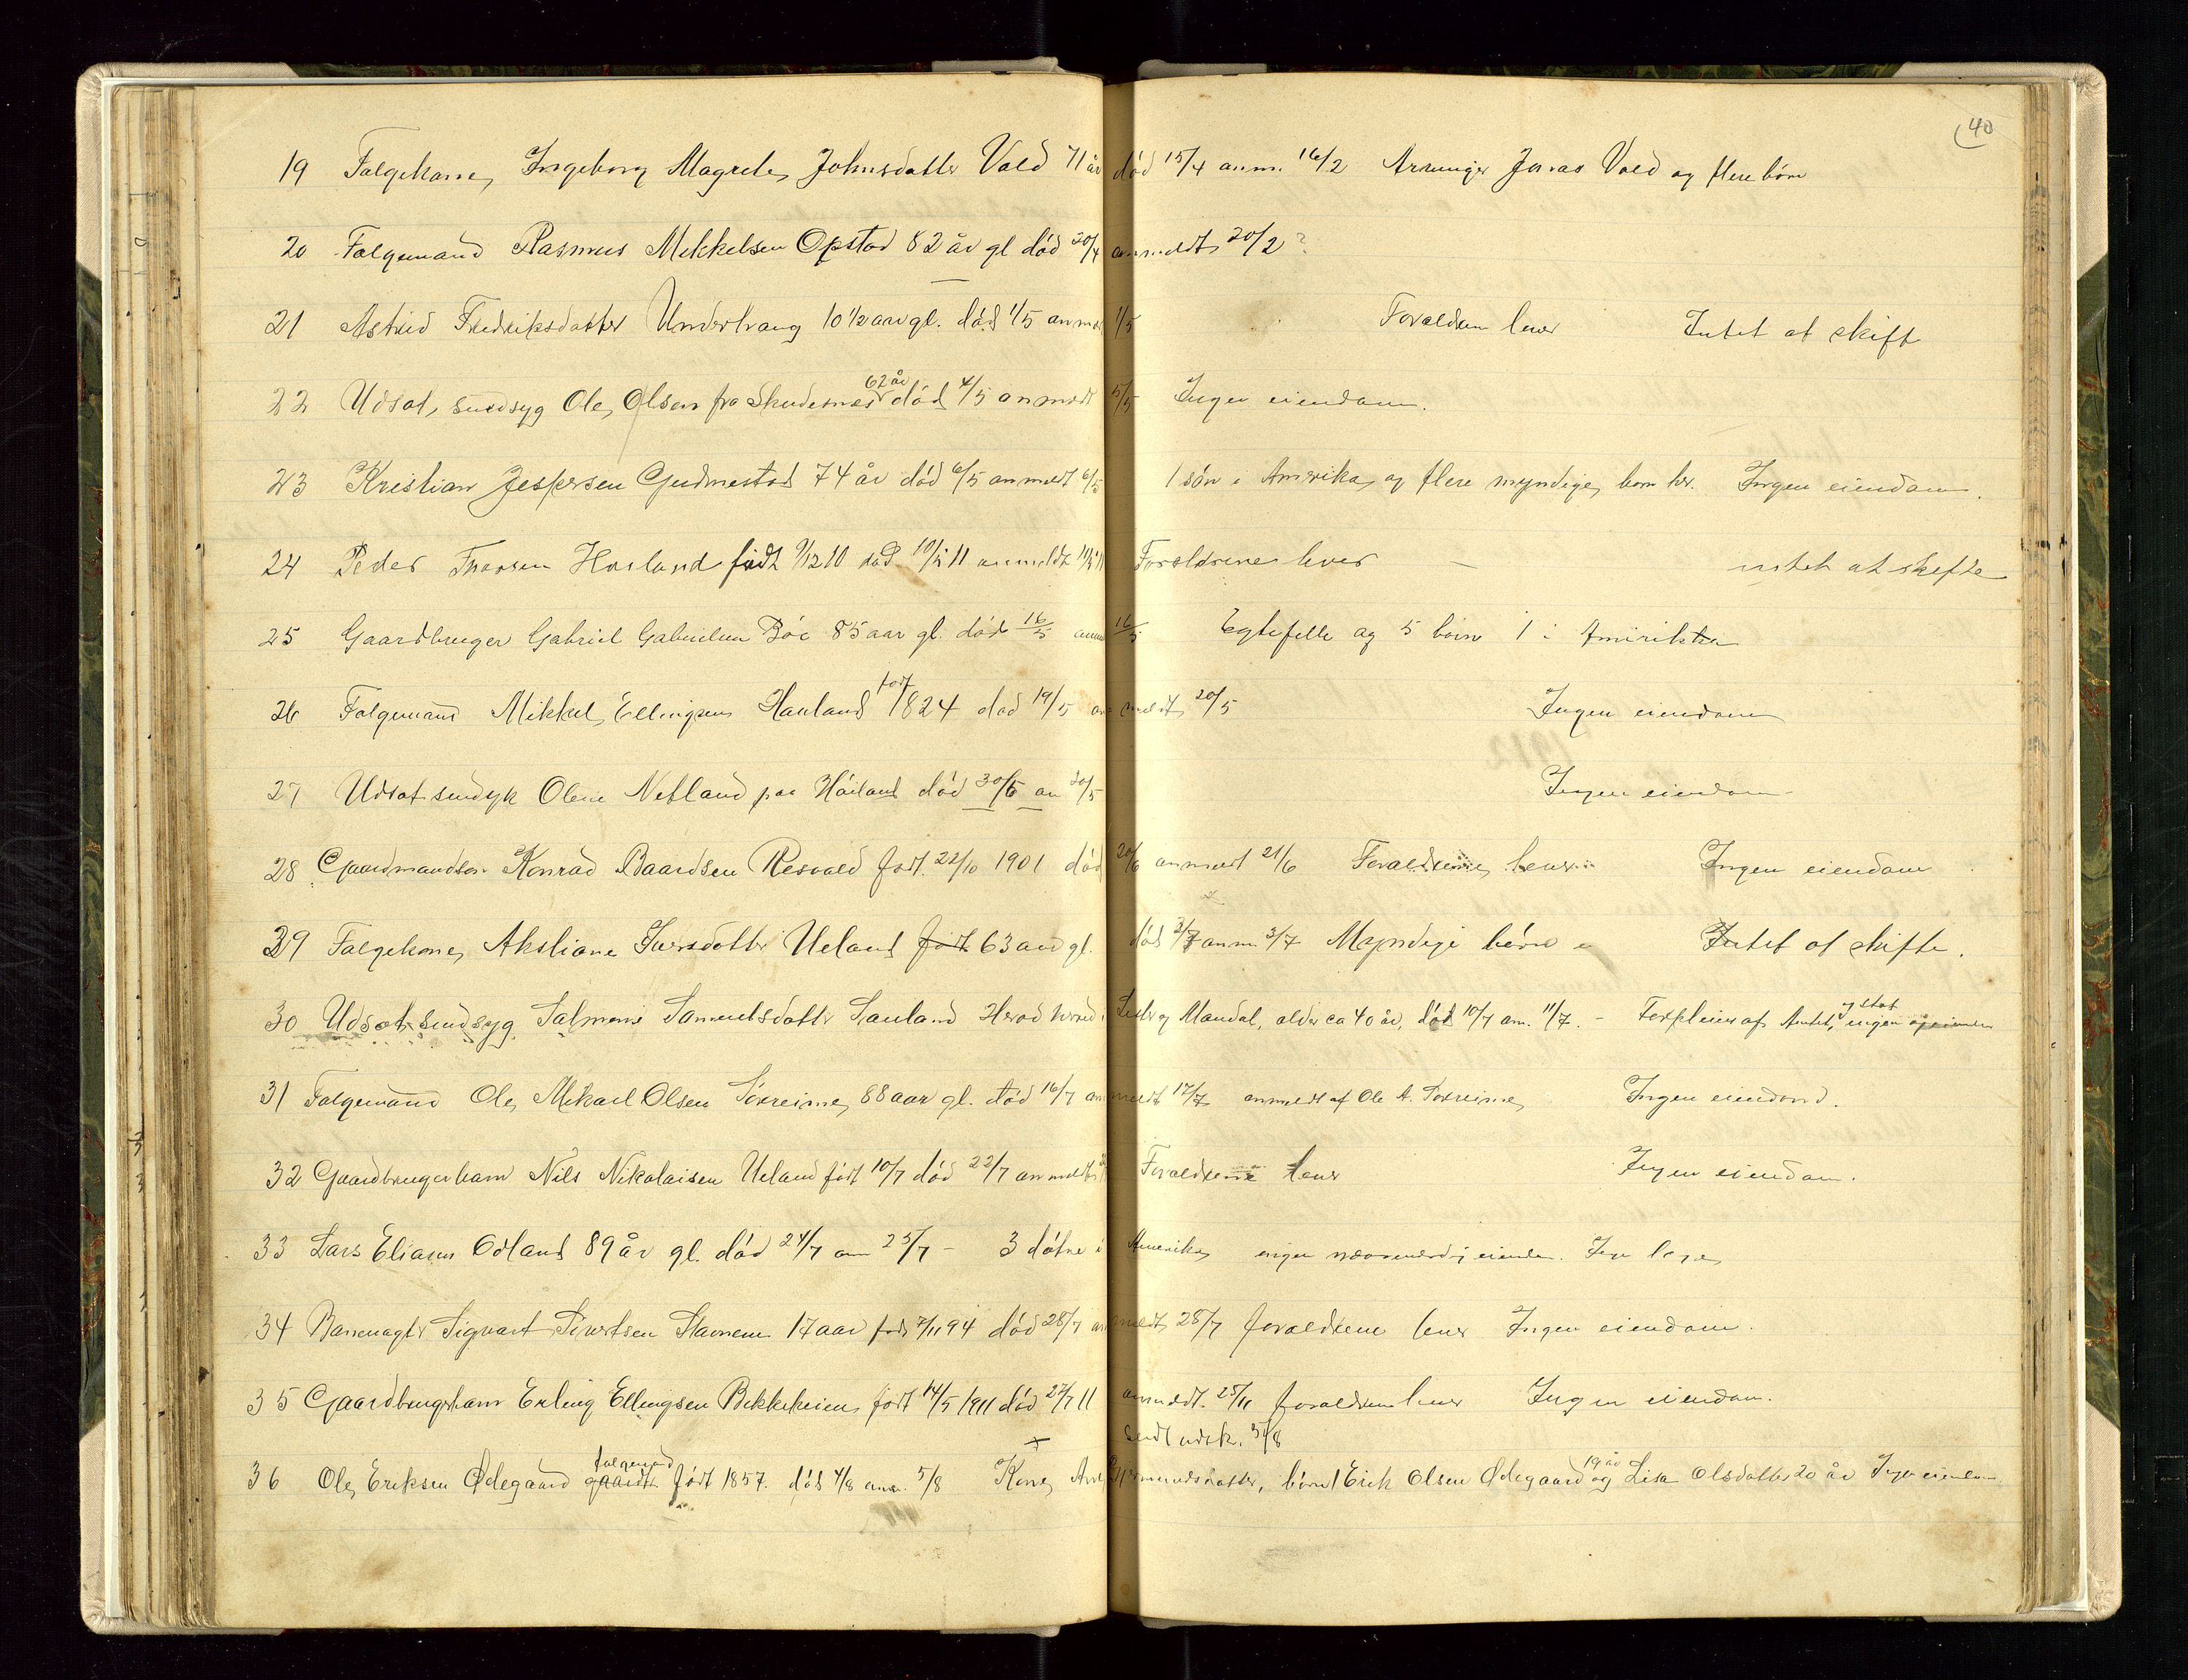 40
19 Folgekone, Ingeborg Magrete, Johnsdatter Vold 71 år død 15/4 anm. 16/2 Arvinger Jonas Vold og flere børn
20 Folgemand Rasmus Mikkelsen Opstad 82 år gl død 20/4 anmeldt 20/2 ?
21 Astrid Fredriksdatter Underhaug 10 1/2 aar gl. død 1/5 anm 1/5 Foraldren lever Intet at skift
62 år
22 Udsat, sindsyg Ole, Olsen fra Skudesnes død 4/5 anmeldt 5/5 Ingen eiendom.
23 Kristian Jespersen Gudmestad 74 år død 6/5 anmeldt 6/5 1 søn i Amerika, og flere myndige, born her. Ingen eiendom.
24 Peder Thorsen Horland født 9/12 10 død 10/5 11 anmeldt 11/5 11 Foreldrene lever — intet at skifte
25 Gaardbruger Gabriel Gabrielsen Bøe 85 aar gl. død 16/5 anm 16/5 Egtefelle og 5 børn 1 i Amirikka
født
26 Folgemand Mikkel, Ellingsen Hauland 1824 død 19/5 anmeldt, 20/5 Ingen eiendom
27 Udsat sindsyk Olene Netland paa Høiland død 30/5 an 30/5 Ingen eiendom
28 Gaardmandsøn Konrad Baardsen Risvold født. 22/10 1901 død 20/6 anmeldt 21/6 Foraldrene, lever Ingen eiendom
29 Folgekone, Aksliane Iversdatter Ueland født 63 aar gl. død 3/7 anm 3/7 Myndige børn Intet at skifte.
30 Udsat sindsyg Salmone Samuelsdatter Sauland Herad herred Lister og Mandal, alder ca 40 år, død 10/7 am. 11/7. - Forpleies af Amtet, og stat ingen eiendom
31 Folgemand Ole, Mikael Olsen Torreime, 88 aar gl. død 16/7 anmeldt 17/7 anmeldt af Ole A. Torreime, Ingen eiendom.
32 Gaardbrugerbarn Nils Nikolaisen Ueland født 10/7 død 22/7 anmeldt Foraldrene lever Ingen eiendom.
33 Lars Eliasen Odland 89 år gl. død 24/7 am 25/7 - 3 døtre i Amerika, ingen eiendom.
34 Banevagter Sigvart Sivertsen Stavnem 17 aar født 7/11 94 død 28/7 anmeldt, 28/7 foraldrene lever Ingen eiendom.
35 Gaardbrugerbarn Erling Ellingsen Bekkeheien, født 14/5 1911 død 27/7 11 anmeldt. foraldren lever Ingen eiendom.
sendt udsk. 31/8
folgemand 19 år
36 Ole, Eriksen Ødegaard gaardb født 1857. død 4/8 anm. 5/8 Kone, børn 1 Erik Olsen Ødegaard og Lisa Olsdatter 20 år Ingen eiendom